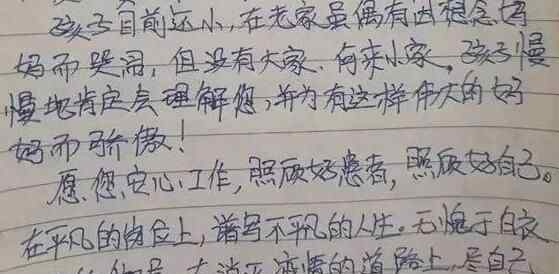 孩子目前还小,在老家虽偶有因想念妈
妈而哭闹,但没有大家、何来小家,孩子慢
慢地肯定会理解您,并为有这样伟大的妈
妈而骄傲!
愿您安心工作,照顾好患者,照顾好自己。
在平凡的岗位上,谱写不平凡的人生。无愧于白衣
在消灭疫情的道路上,尽自己